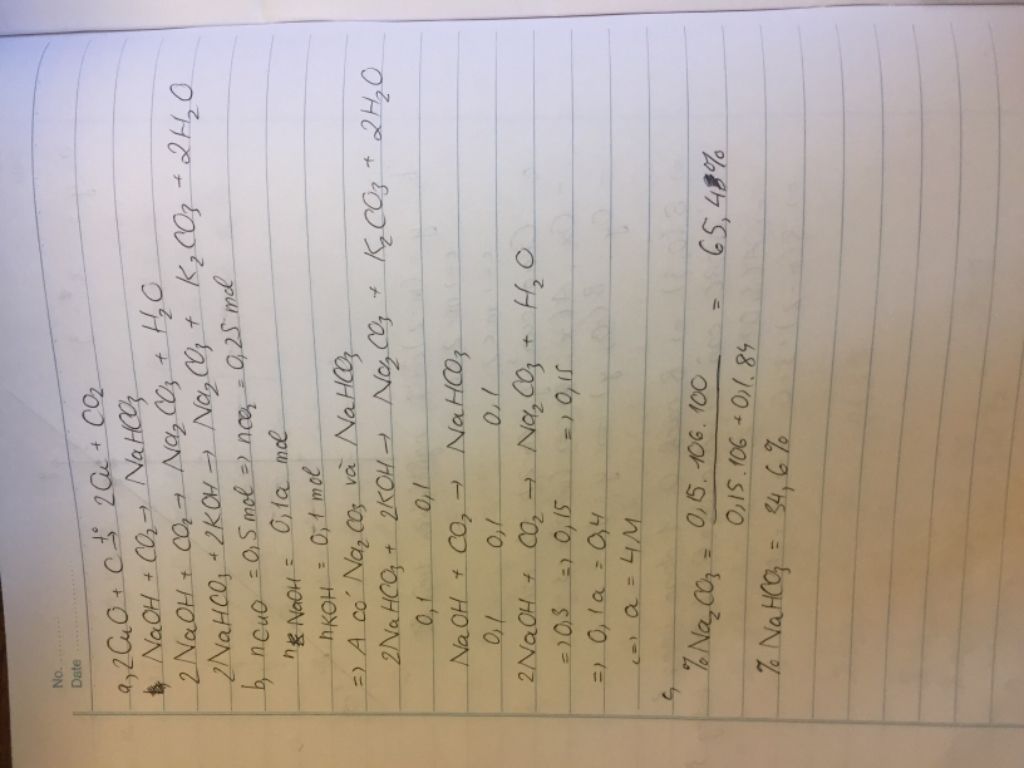 No. ............
Date ............
a, 2CuO + C →t° 2Cu + CO2
NaOH + CO2 → NaHCO3
2NaOH + CO2 → Na2CO3 + H2O
2NaHCO3 + 2KOH → Na2CO3 + K2CO3 + 2H2O
b, nCuO = 0,5 mol => nCO2 = 0,25 mol
nNaOH = 0,1a mol
nKOH = 0,1 mol
=> A có Na2CO3 và NaHCO3
2NaHCO3 + 2KOH → Na2CO3 + K2CO3 + 2H2O
0,1 0,1
NaOH + CO2 → NaHCO3
0,1 0,1 0,1
2NaOH + CO2 → Na2CO3 + H2O
=> 0,3 => 0,15 => 0,15
=> 0,1a = 0,4
<=> a = 4M
c,
%Na2CO3 = 0,15.106.100 / 0,15.106 + 0,1.84 = 65,4%
% NaHCO3 = 34,6%